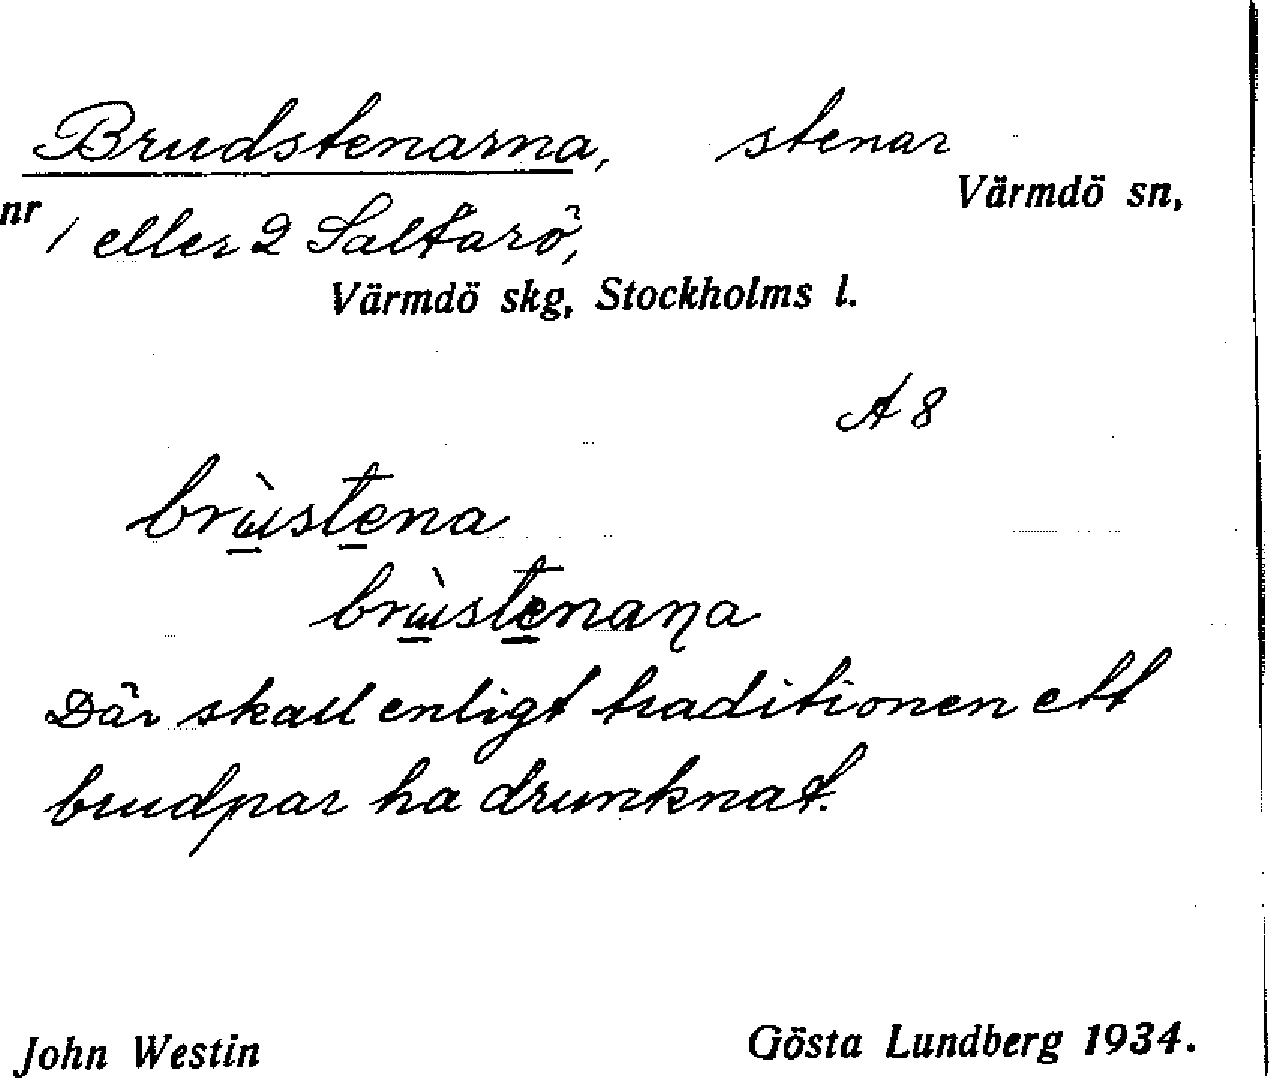 Brudstenarna, stenar
Värmdö sn,
nr 1 eller 2 Saltarö,
Värmdö skg, Stockholms l.
A 8
brùstena
brùstenaṇa
Där skall enligt traditionen ett
brudpar ha drunknat.
John Westin Gösta Lundberg 1934.